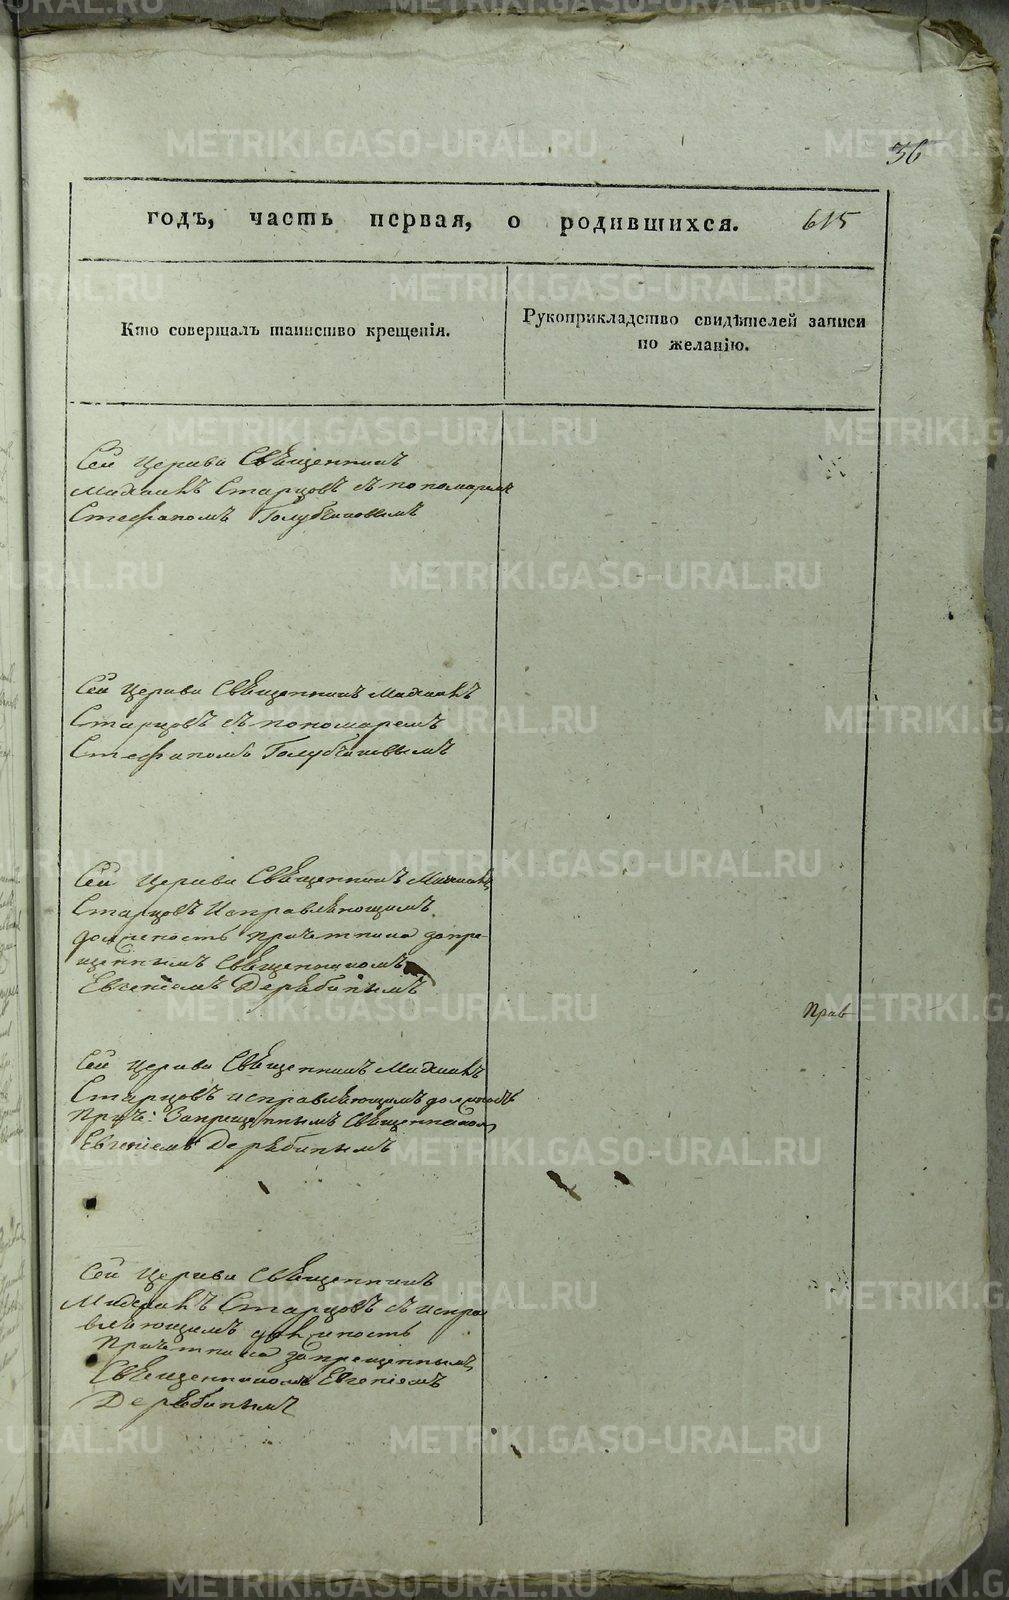 36
годъ, часть первая, о родившихся. 615
Кто совершалъ таинство крещенія.
Рукоприкладство свидѣтелей записи
по желанію.
Сей Церкви Священникъ
Михаилъ Старцовъ съ пономаремъ
Стефаномъ Голубчиковымъ
Сей Церкви Священникъ Михаилъ
Старцовъ съ пономаремъ
Стефаномъ Голубчиковымъ
Сей Церкви Священникъ Михаилъ
Старцовъ исправляющимъ
должность причетника запре-
щеннымъ Священникомъ
Евгеніемъ Дерябинымъ
Прав
Сей Церкви Священникъ Михаилъ
Старцовъ исправляющимъ должность
Прич: Запрещеннымъ Священникомъ
Евгеніемъ Дерябинымъ
Сей Церкви Священникъ
Михаилъ Старцовъ съ испра
вляющимъ должность
Причетника запрещеннымъ
Священникомъ Евгеніемъ
Дерябинымъ
METRIKI.GASO-URAL.RU